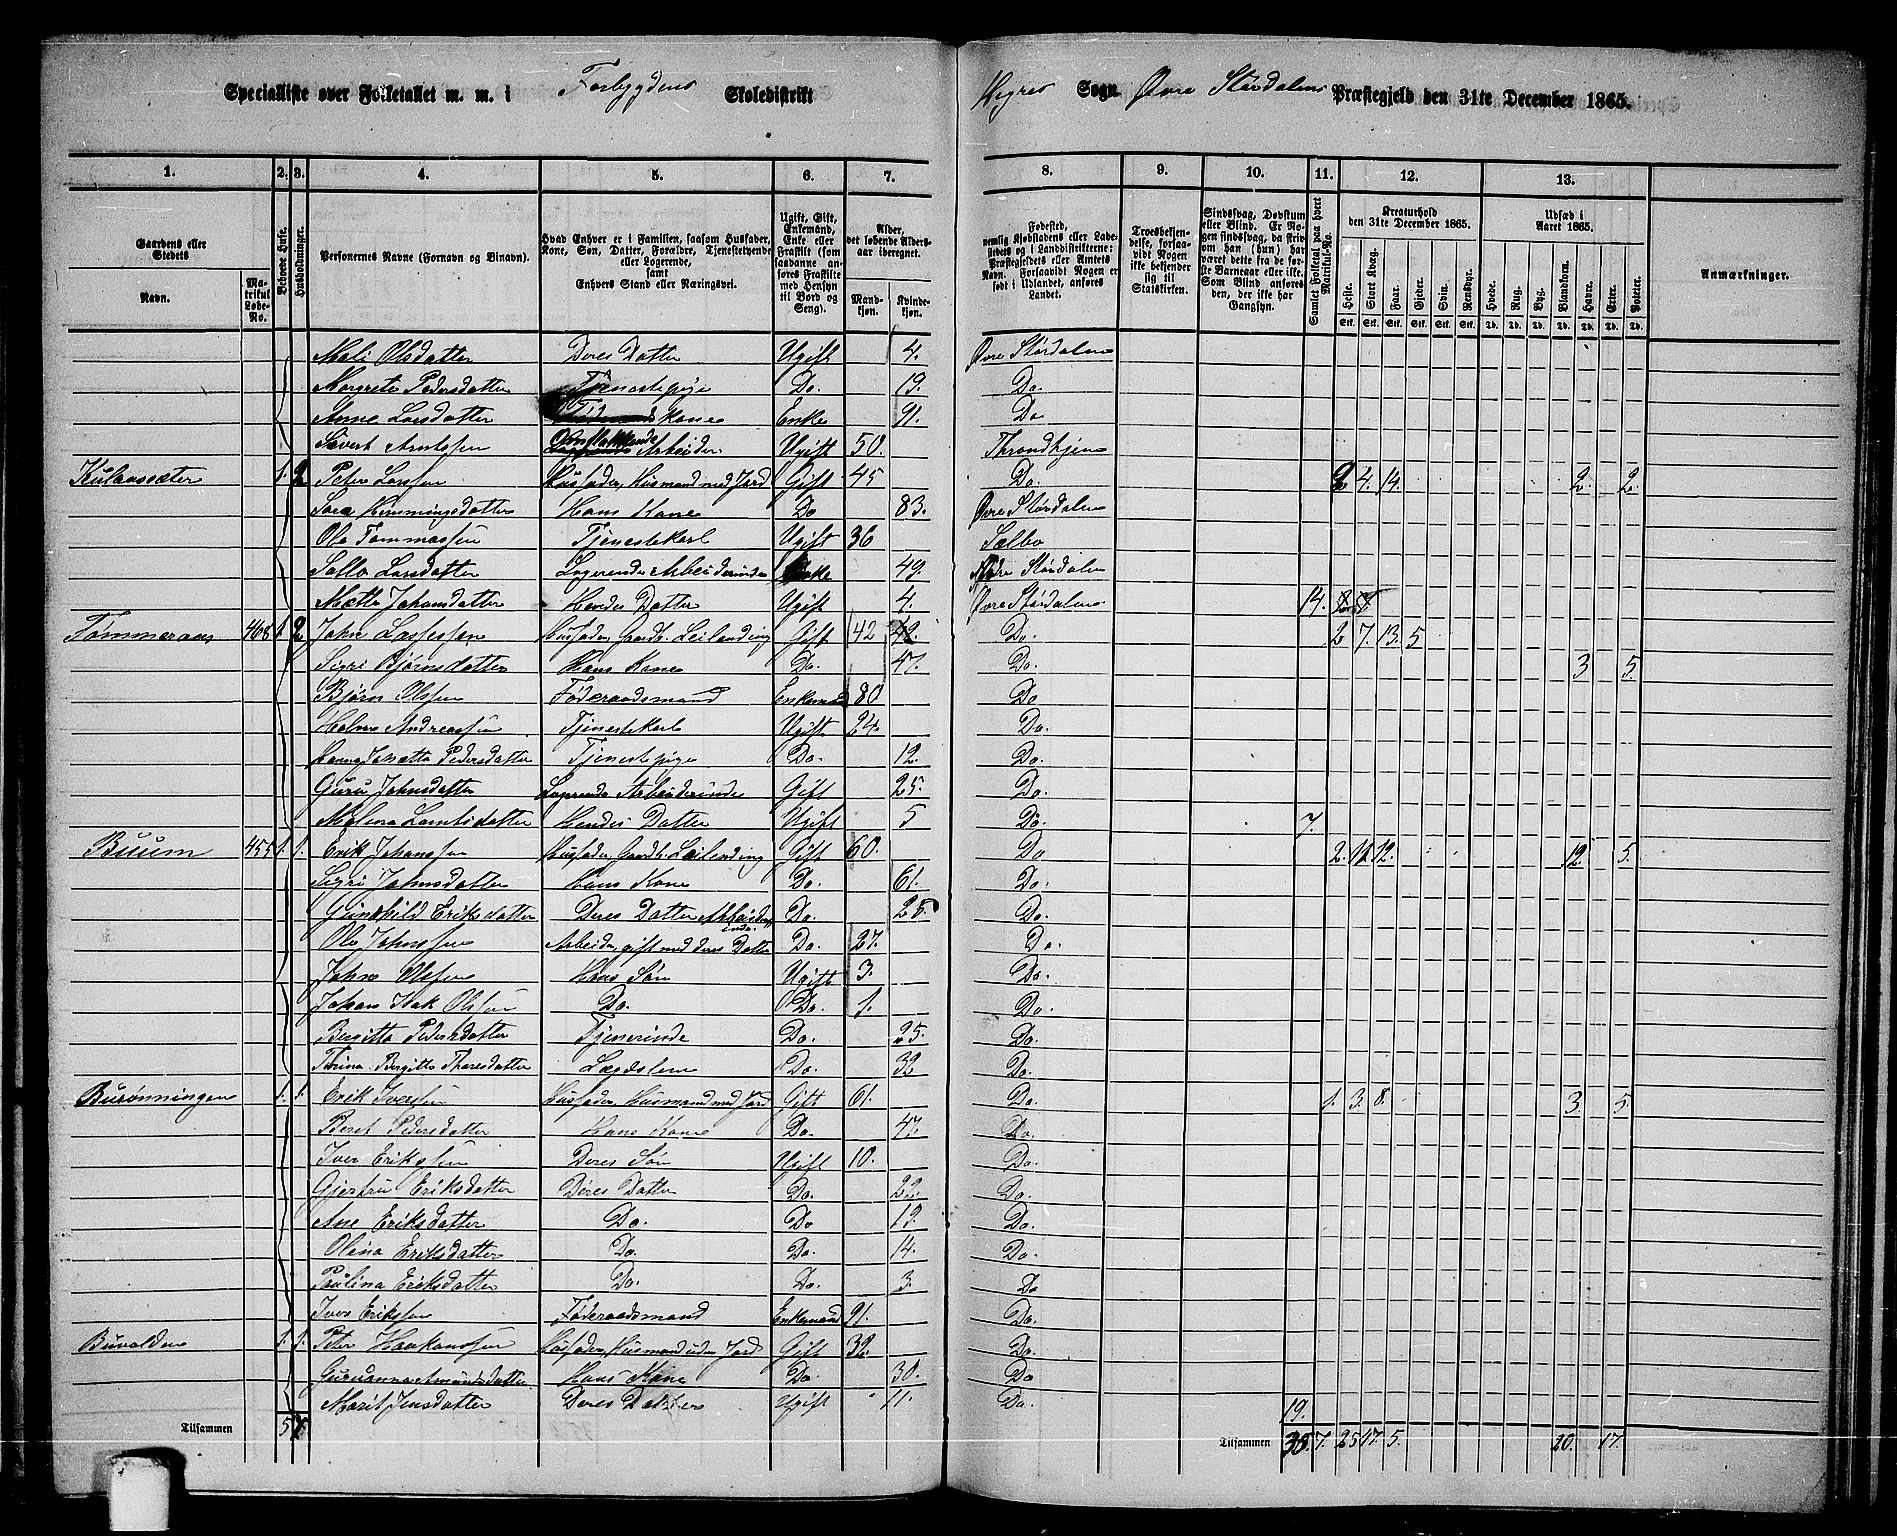 Specialliste over Folketallet m. m. i Forbygdens Skoledistrikt Hegres Sogn Øvre Størdalens Præstegjeld den 31te December 1865.
1. 2. 3. 4. 5. 6. 7. 8. 9. 10. 11. 12. 13.
Gaardens eller Stedets
Navn.
Matrikul Løbe-No.
Beboede Huse.
Husholdninger.
Personernes Navne (Fornavn og Binavn).
Hvad Enhver er i Familien, saasom Husfader, Kone, Søn, Datter, Forældre, Tjenestetyende eller Logerende, samt Enhvers Stand eller Næringsvei.
Ugift, Gift, Enkemand, Enke eller Fraskilt (som saadanne anføres Fraskilte med Hensyn til Bord og Seng).
Alder, det løbende Aldersaar iberegnet.
Mandkjøn. Kvindekjøn.
Fødested,
Sindssvag, Døvstum eller Blind.
Samlet Folketal paa hvert Matrikul-No.
Kreaturhold den 31te December 1865.
Heste. Stort Kvæg. Faar. Gjeder. Svin. Rensdyr.
Udsæd i Aaret 1865.
Hvede. Rug. Byg. Blandkorn. Havre. Erter. Poteter.
Anmærkninger.
Mali Olsdatter Deres Datter Ugift 4. Øvre Størdalen
Margrete Pedersdatter Tjenestepige Do. 19. Do.
Anne Larsdatter kone Enke 91. Do
Sivert Arntssen Arbeider Ugift 50. Throndhjem
Peter Larssen Husfader, Husmand med Jord Gift 45 Do. 2 4. 14. 2. 2.
Sara Hemmingsdatter Hans Kone Do 83. Øvre Størdalen
Ole Tommassen Tjenestekarl Ugift 36 Sælbo
Larsdatter Logerende Arbeiderinde Enke 49. Nedre Størdalen
Mætta Johansdatter Hendes Datter Ugift 4. Øvre Størdalen 14.
Tømmeraas 468 1. 2 John Lassessøn Husfader, Gaardb. Leilending Gift 42 Do. 2 7. 13. 5
Sigri Bjørnsdatter Hans Kone Do. 47. Do. 3 5.
Bjørn Olssen Føderaadsmand Enkemand 80 Do
Andreassen Tjenestekarl Ugift 24. Do.
Pedersdatter Tjenestepige Do. 12. Do.
Guru Johnsdatter Logerende Arbeiderinde Gift 25. Do.
Datter Hendes Datter Ugift 5 Do 7.
Buum 455 1. 1. Erik Johanssen Husfader, Gaardb. Leilending Gift 60. Do 2. 11 12. 12. 5.
Sigri Johnsdatter Hans Kone Do. 61. Do.
Gunhild Eriksdatter Deres Datter Arbeiderinde. Do. 25. Do.
Ole Johnssen Arbeider, gift med deres Datter Do. 27. Do.
John Olssen Hans Søn Ugift 3. Do.
Johan Isak Olssen Do. Do. 1. Do.
Beritta Pedersdatter Tjenerinde Do. 25. Do.
Bergitta Thoresdatter Lægdslem Do. 32 Do.
Burønningen 1. 1. Erik Iverssen Husfader, Husmand med Jord Gift 61. Do. 1. 3. 8. 3. 5.
Beret Pedersdatter Hans Kone Do. 47. Do.
Iver Erikssen Deres Søn Ugift 10. Do.
Gjertru Eriksdatter Deres Datter Do. 22. Do.
Ane Eriksdatter Do. Do 19. Do.
Olina Eriksdatter Do. Do. 14. Do.
Paulina Eriksdatter Do. Do. 3 Do
Iver Erikssen Føderaadsmand Enkemand 91. Do.
1. 1. Peter Haakenssen Husfader, Husmand uden Jord Gift 32. Do.
Guruanna Amundsdatter Hans Kone Do. 30. Do
Marit Jensdatter Deres Datter Ugift 11. Do. 19.
Tilsammen 5 7. Tilsammen 38. 7. 25 47. 5. 20. 17.